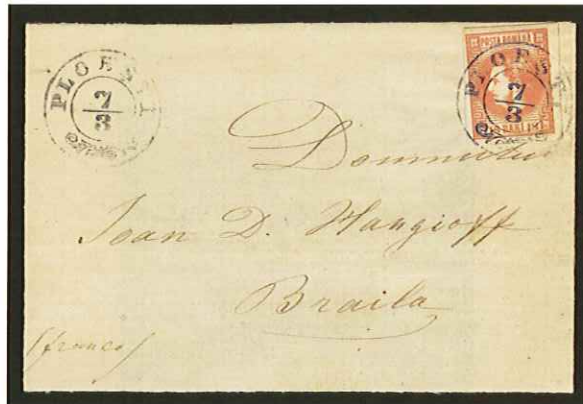 PLOESTI
7
3
POSTA ROMANA
PLOESTI
7
3
BANI
Domnului
Ioan D. Hangioff
Braila
(franco)